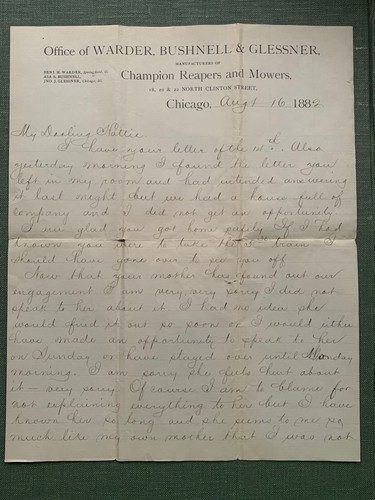 Office of WARDER, BUSHNELL & GLESSNER,
MANUFACTURERS OF
BENJ. H. WARDER, Springfield, O.
ASA S. BUSHNELL,
JNO. J. GLESSNER, Chicago, Ill.
Champion Reapers and Mowers,
16, 20 & 22 NORTH CLINTON STREET,
Chicago, Augt 16 1882
My Darling Hattie
I have your letter of the 14th. Also
yesterday morning I found the letter you
left in my room and had intended answering
it last night but we had a house full of
company and I did not get an opportunity
I am glad you got home safely If I had
known you were to take the train I
should have gone over to see you off
Now that your mother has found out our
engagement I am very very sorry I did not
speak to her about it. I had no idea she
would find it out so soon or I would either
have made an opportunity to speak to her
on Sunday or have stayed over until Monday
morning. I am sorry she feels hurt about
it - very sorry. Of course I am to blame for
not explaining everything to her but I have
known her so long and she seems to me so
much like my own mother that I was not